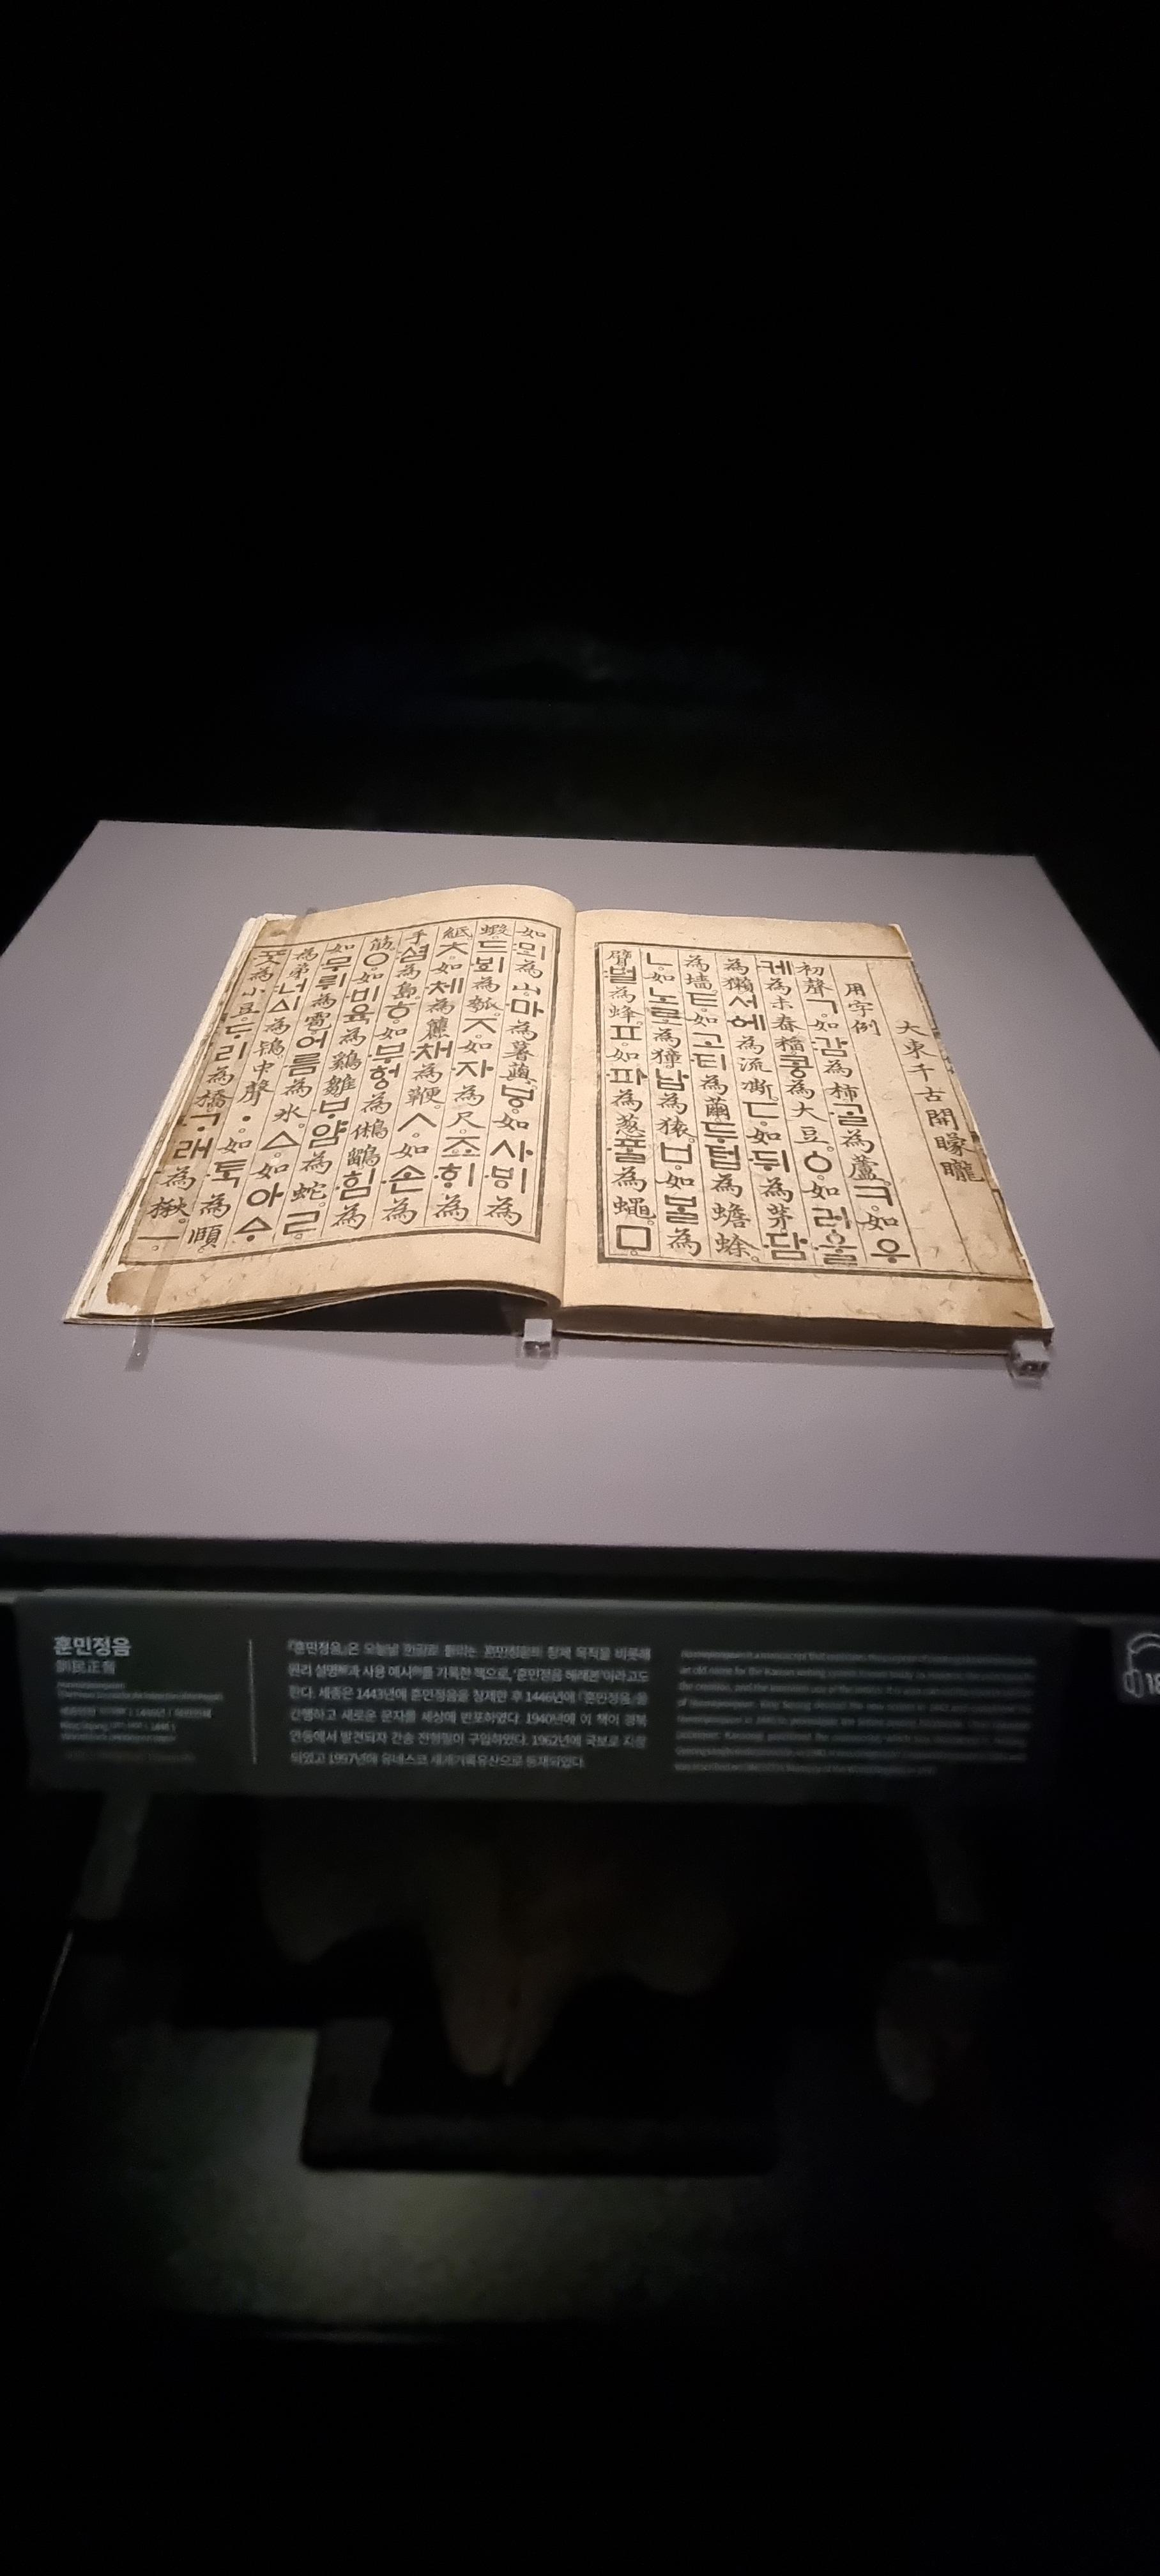 大東千古開矇矓
用字例
初聲ㄱ。如감為柿。ᄀᆞᆯ為蘆。ㅋ。如우
케為未舂稻。콩為大豆。ㆁ。如러울
為獺。서에為流凘。ㄷ。如뒤為茅。담
為墻。ㅌ。如고티為繭。두텁為蟾蜍。
ㄴ。如노로為獐。납為猿。ㅂ。如ᄇᆞᆯ為
臂。벌為蜂。ㅍ。如파為葱。ᄑᆞᆯ為蠅。ㅁ。
如뫼為山。마為薯藇。ㅸ。如사ᄫᅵ為
蝦。드ᄫᅴ為瓠。ㅈ。如자為尺。죠ᄒᆡ為
紙。ㅊ。如체為簏。채為鞭。ㅅ。如손為
手。셤為島。ㅎ。如부헝為鵂鶹。힘為
筋。ㅇ。如비육為鷄雛。ᄇᆞ얌為蛇。ㄹ。
如무뤼為雹。어름為氷。ㅿ。如아ᅀᆞ
為弟。너ᅀᅵ為鴇。中聲ㆍ。如ᄐᆞᆨ為頤。
ᄑᆞᆺ為小豆。ᄃᆞ리為橋。ᄀᆞ래為楸。ㅡ。
훈민정음
訓民正音
『훈민정음』은 오늘날 한글로 불리는 훈민정음의 창제 목적을 비롯해
원리 설명과 사용 예시를 기록한 책으로, '훈민정음 해례본'이라고도
한다. 세종은 1443년에 훈민정음을 창제한 후 1446년에 『훈민정음』을
간행하고 새로운 문자를 세상에 반포하였다. 1940년에 이 책이 경북
안동에서 발견되자 간송 전형필이 구입하였다. 1962년에 국보로 지정
되었고 1997년에 유네스코 세계기록유산으로 등재되었다.